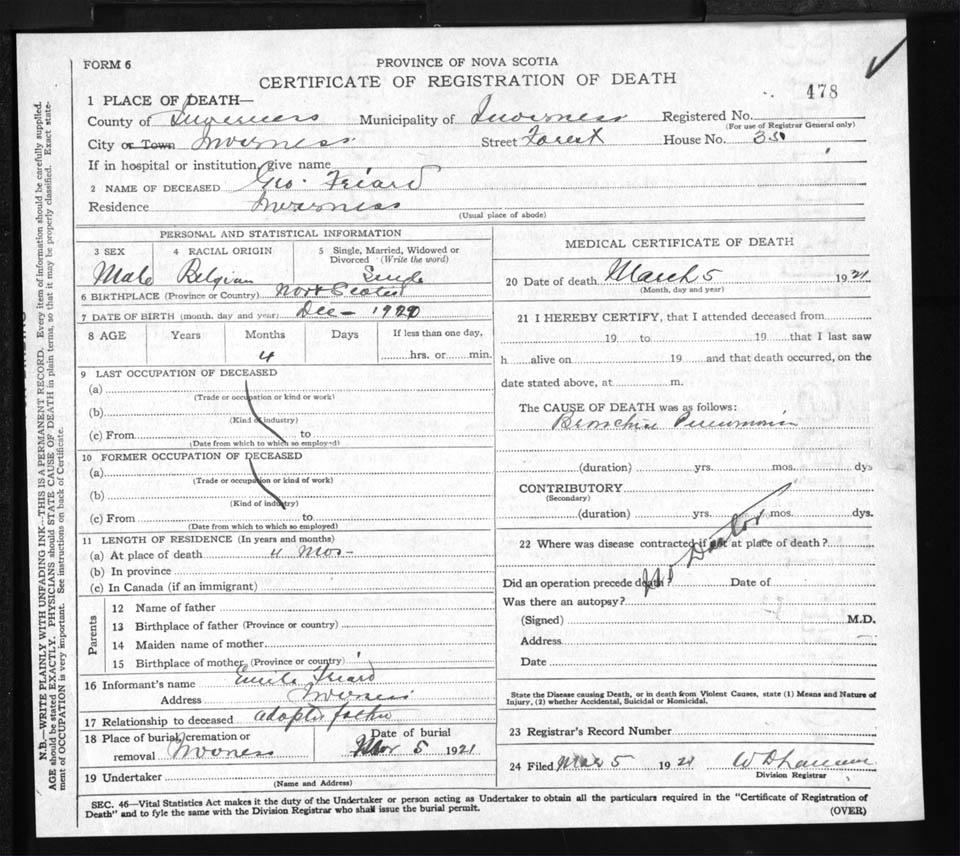 FORM 6
PROVINCE OF NOVA SCOTIA
CERTIFICATE OF REGISTRATION OF DEATH
478
1 PLACE OF DEATH—
County of Inverness Municipality of Inverness Registered No.
(For use of Registrar General only)
City or Town Inverness Street Forest House No. 35
If in hospital or institution, give name
2 NAME OF DECEASED Geo. Friard
Residence Inverness
(Usual place of abode)
PERSONAL AND STATISTICAL INFORMATION
3 SEX 4 RACIAL ORIGIN 5 Single, Married, Widowed or Divorced (Write the word)
Male Belgian Single
6 BIRTHPLACE (Province or Country) Nova Scotia
7 DATE OF BIRTH (month, day and year) Dec – 1920
8 AGE Years Months Days If less than one day,
4 hrs. or min.
9 LAST OCCUPATION OF DECEASED
(a)
(Trade or occupation or kind or work)
(b)
(Kind of industry)
(c) From to
(Date from which to which so employed)
10 FORMER OCCUPATION OF DECEASED
(a)
(Trade or occupation or kind of work)
(b)
(Kind of industry)
(c) From to
(Date from which to which so employed)
11 LENGTH OF RESIDENCE (In years and months)
(a) At place of death 4 mos –
(b) In province
(c) In Canada (if an immigrant)
Parents
12 Name of father
13 Birthplace of father (Province or country)
14 Maiden name of mother
15 Birthplace of mother (Province or country)
16 Informant's name Emile Friard
Address Inverness
17 Relationship to deceased adopted father
18 Place of burial, cremation or Date of burial
removal Inverness Mar 5 1921
19 Undertaker
(Name and Address)
MEDICAL CERTIFICATE OF DEATH
20 Date of death March 5 1921
(Month, day and year)
21 I HEREBY CERTIFY, that I attended deceased from
19 to 19 that I last saw
h alive on 19 and that death occurred, on the
date stated above, at m.
The CAUSE OF DEATH was as follows:
Pneumonia
(duration) yrs. mos. dys
CONTRIBUTORY
(Secondary)
(duration) yrs. mos. dys.
22 Where was disease contracted if not at place of death?
No Doctor
Did an operation precede death? Date of
Was there an autopsy?
(Signed) M.D.
Address
Date
State the Disease causing Death, or in death from Violent Causes, state (1) Means and Nature of
Injury, (2) whether Accidental, Suicidal or Homicidal.
23 Registrar's Record Number
24 Filed Mar 5 1921
Division Registrar
SEC. 46—Vital Statistics Act makes it the duty of the Undertaker or person acting as Undertaker to obtain all the particulars required in the "Certificate of Registration of
Death" and to fyle the same with the Division Registrar who shall issue the burial permit.
(OVER)
N.B.—WRITE PLAINLY WITH UNFADING INK—THIS IS A PERMANENT RECORD. Every item of information should be carefully supplied.
AGE should be stated EXACTLY. PHYSICIANS should STATE CAUSE OF DEATH in plain terms, so that it may be properly classified. Exact state-
ment of OCCUPATION is very important. See instructions on back of Certificate.